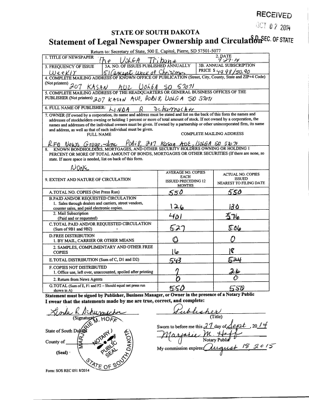 RECEIVED
OCT 07 2014
S.D. SEC. OF STATE
STATE OF SOUTH DAKOTA
Statement of Legal Newspaper Ownership and Circulation
Return to: Secretary of State, 500 E. Capitol, Pierre, SD 57501-5077
1. TITLE OF NEWSPAPER The Volga Tribune
2. DATE
3. FREQUENCY OF ISSUE WEEKLY
3A. NO. OF ISSUES PUBLISHED ANNUALLY 51
3B. ANNUAL SUBSCRIPTION PRICE $
4. COMPLETE MAILING ADDRESS OF KNOWN OFFICE OF PUBLICATION (Street, City, County, State and ZIP+4 Code) (Not printers)
207 KASAN AVE VOLGA SD 57071
5. COMPLETE MAILING ADDRESS OF THE HEADQUARTERS OR GENERAL BUSINESS OFFICES OF THE
PUBLISHER (Not printers) 207 KASAN AVE, VOLGA SD 57071
6. FULL NAME OF PUBLISHER: LINDA
7. OWNER (If owned by a corporation, its name and address must be stated and also the names and
addresses of stockholders owning or holding 1 percent or more of total amount of stock. If not owned by a corporation, the
names and addresses of the individual owners must be given. If owned by a partnership or other unincorporated firm, its name
and address, as well as that of each individual must be given.
FULL NAME COMPLETE MAILING ADDRESS
8. KNOWN BONDHOLDERS, MORTGAGEES, AND OTHER SECURITY HOLDERS OWNING OR HOLDING 1
PERCENT OR MORE OF TOTAL AMOUNT OF BONDS, MORTGAGES OR OTHER SECURITIES (If there are none, so
state. If more space is needed, list on back of this form.
NONE
9. EXTENT AND NATURE OF CIRCULATION
AVERAGE NO. COPIES EACH ISSUED PRECEDING 12 MONTHS
ACTUAL NO. COPIES ISSUED NEAREST TO FILING DATE
A. TOTAL NO. COPIES (Net Press Run) 550 550
B. PAID AND/OR REQUESTED CIRCULATION
1. Sales through dealers and carriers, street vendors, counter sales, and paid electronic copies. 126 130
2. Mail Subscription (Paid and or requested) 401 376
C. TOTAL PAID AND/OR REQUESTED CIRCULATION (Sum of 9B1 and 9B2) 527 506
D. FREE DISTRIBUTION
1. BY MAIL, CARRIER OR OTHER MEANS 0 0
2. SAMPLES, COMPLIMENTARY AND OTHER FREE COPIES 16 18
E. TOTAL DISTRIBUTION (Sum of C, D1 and D2) 543 524
F. COPIES NOT DISTRIBUTED
1. Office use, left over, unaccounted, spoiled after printing 7 26
2. Return from News Agents 0 0
G. TOTAL (Sum of E, F1 and F2 - Should equal net press run shown in A) 550 550
Statement must be signed by Publisher, Business Manager, or Owner in the presence of a Notary Public
I swear that the statements made by me are true, correct, and complete:
Publisher
(Signature) (Title)
State of South Dakota
County of
(Seal)
MARJORIE M. HOFF
NOTARY PUBLIC
SEAL
STATE OF SOUTH DAKOTA
Sworn to before me this 27 day of Sept, 2014
Marjorie M. Hoff
Notary Public
My commission expires: August 18 2015
Form: SOS REC 051 8/2014